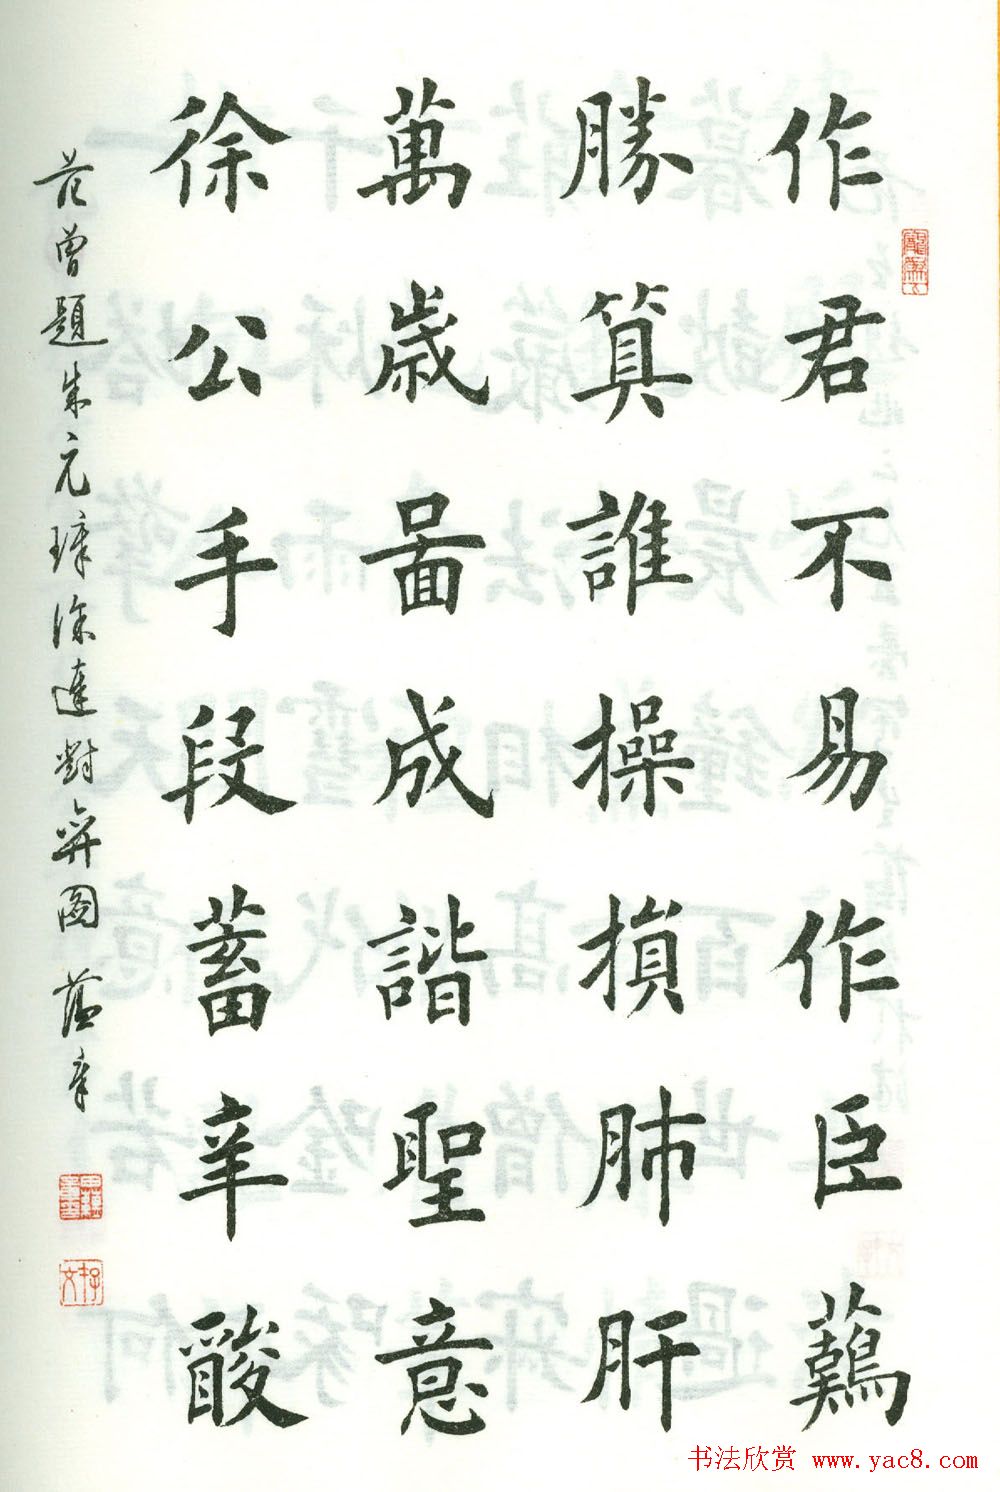 作君不易作臣難
勝算誰操損肺肝
萬歲啚成諧聖意
徐公手段蓄辛酸
范曾題朱元璋徐達對弈圖 蘊章
书法欣赏 www.yac8.com